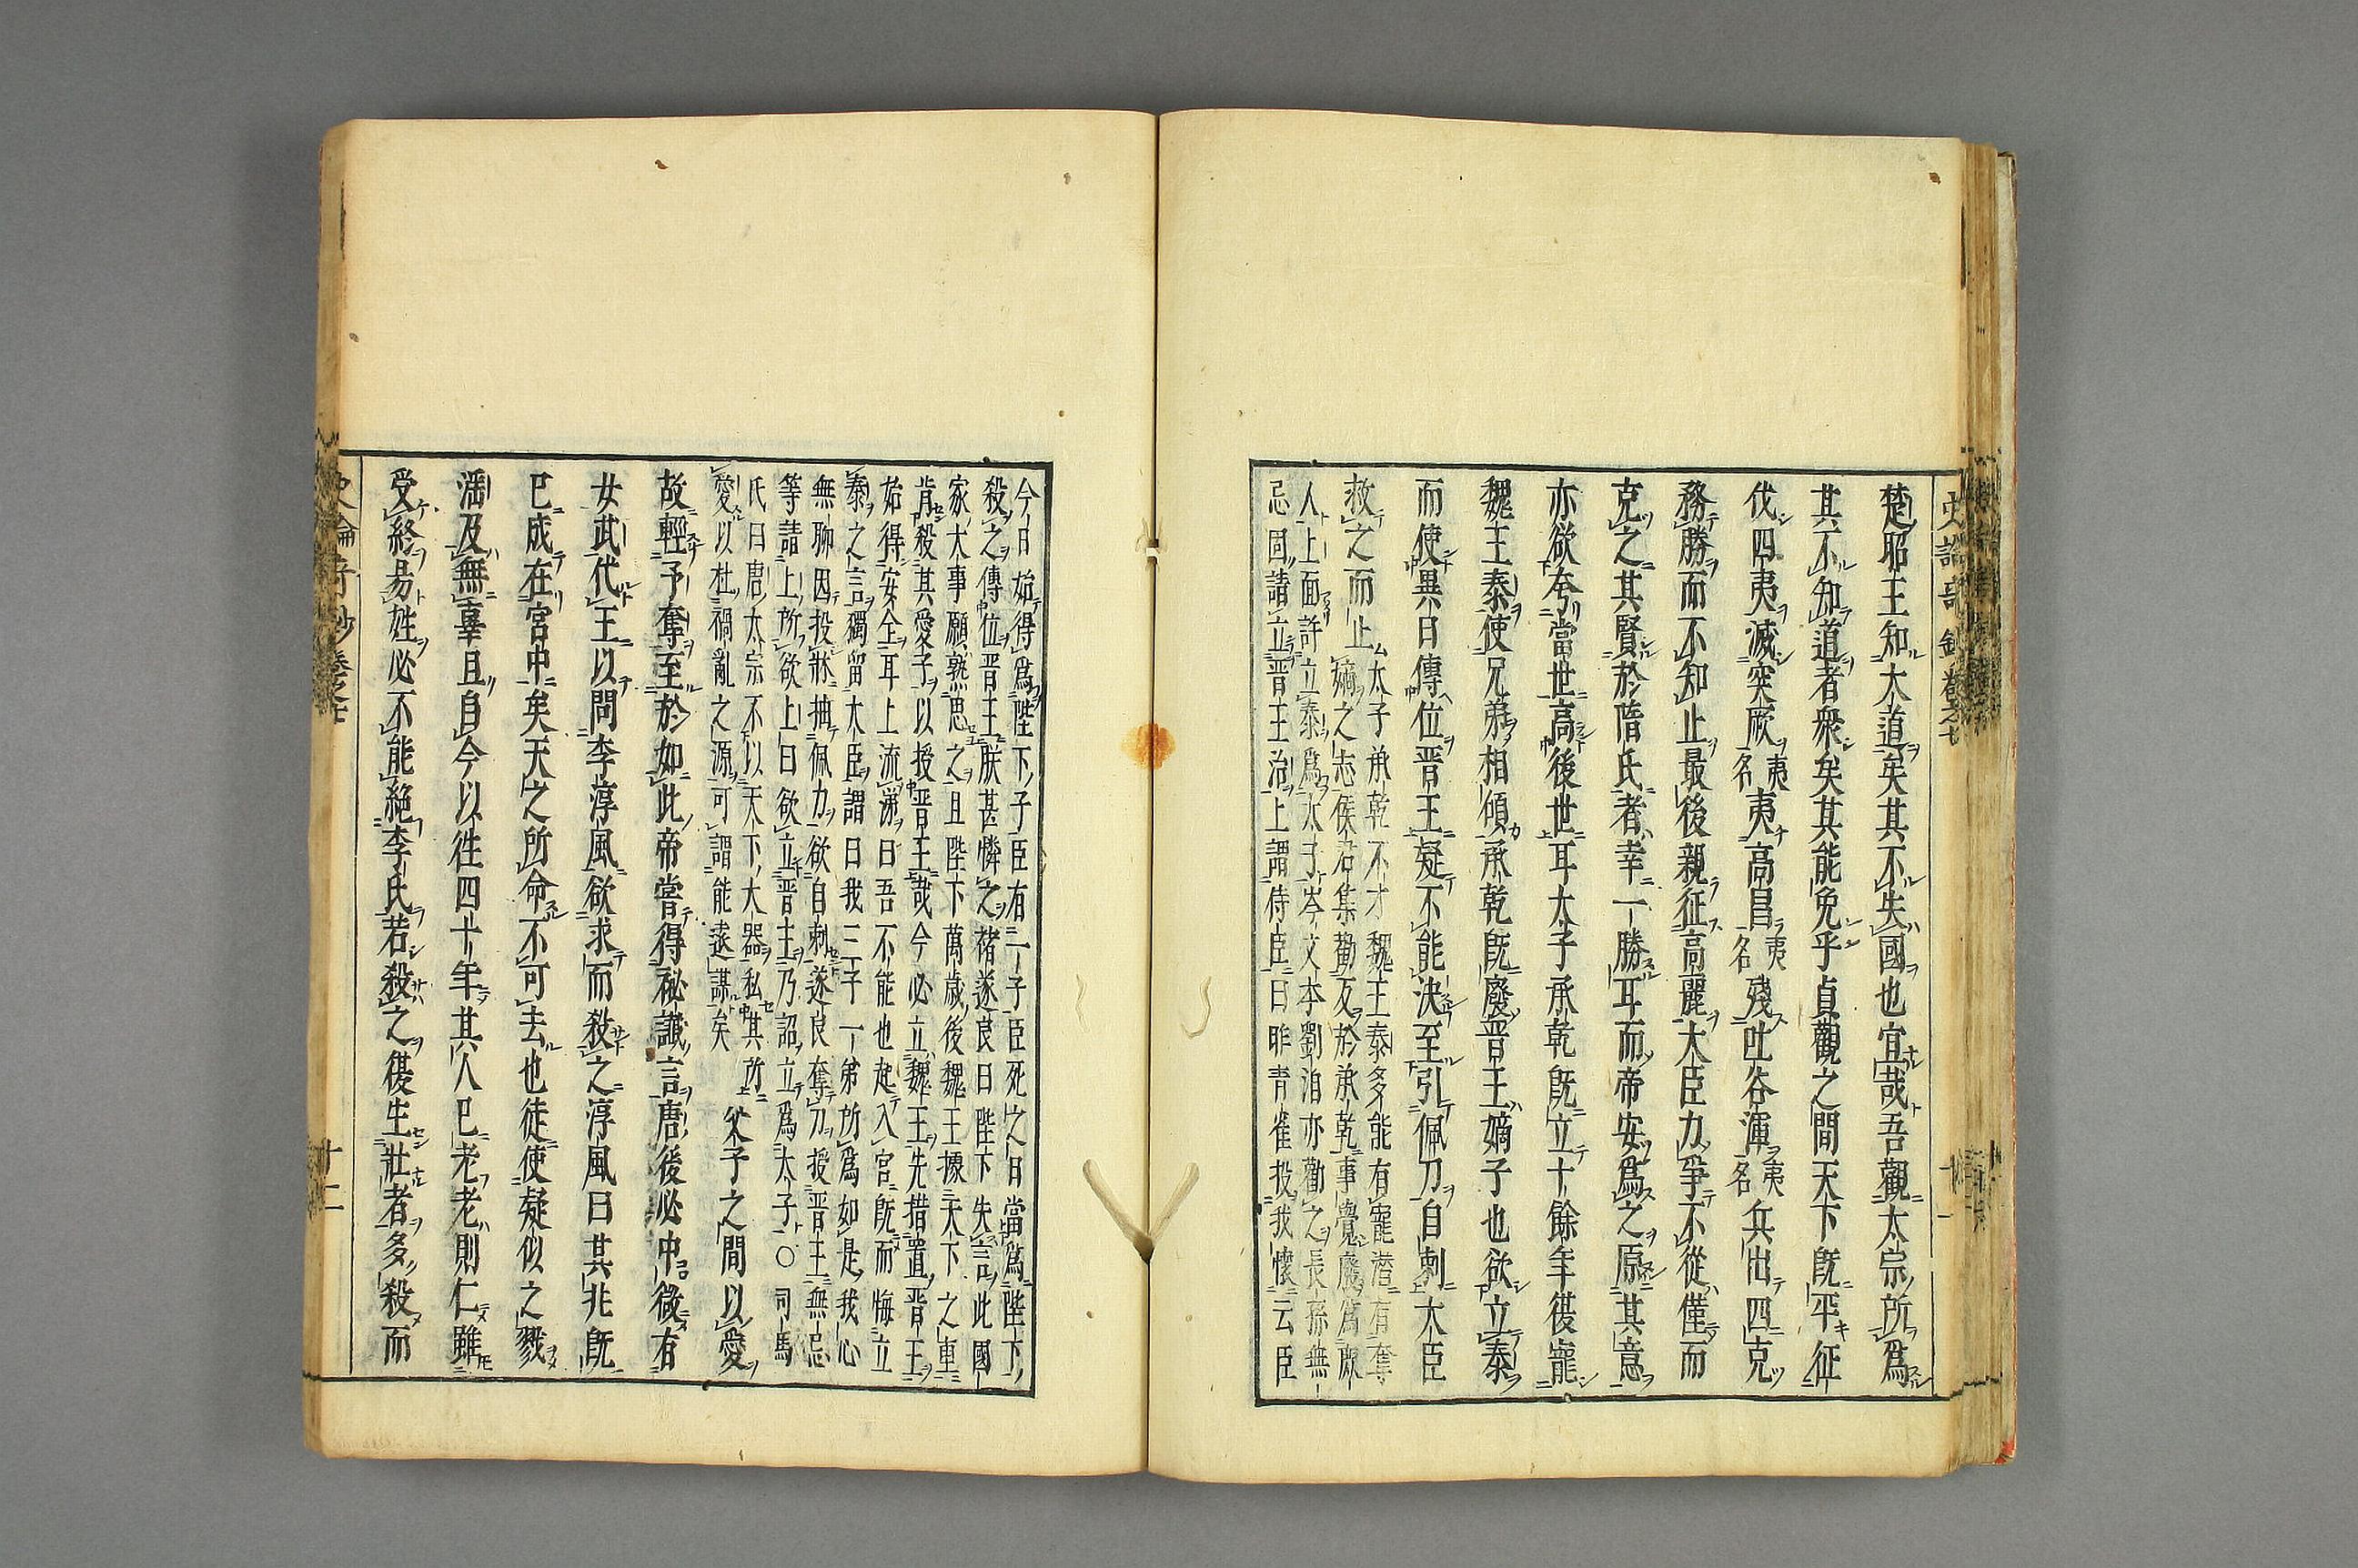 楚昭王知大道矣其不失國也宜哉吾觀太宗所爲
其不知道者衆矣其能免乎貞觀之間天下既平征
伐四夷滅突厥夷名夷高昌夷名殘吐谷渾夷名兵出四克
務勝而不知止最後親征高麗大臣力爭不從僅而
克之其賢於隋氏者幸一勝耳而帝安爲之原其意
亦欲夸當世高後世耳太子承乾既立十餘年復寵
魏王泰使兄弟相傾承乾既廢晉王嫡子也欲立泰
而使異日傳位晉王疑不能決至引佩刀自刺大臣
救之而止
太子承乾不才魏王泰多能有寵潜有奪
嫡之志侯君集勸反於承乾事覺廢爲庶
人上面許立泰爲太子岑文本劉洎亦勸之長孫無
忌固請立晉王治上謂侍臣曰昨青雀投我懷云臣
今日始得爲陛下子臣有一子臣死之日當爲陛下
殺之傳位晉王朕甚憐之褚遂良曰陛下失言此國
家大事願熟思之且陛下萬歲後魏王據天下之重
肯殺其愛子以授晉王哉今必立魏王先措置晉王
始得安全耳上流涕曰吾不能也起入宮既而悔立
泰之言獨留大臣謂曰我三子一弟所爲如是我心
無聊因投牀抽佩刀欲自刺遂良奪刀授晉王無忌
等請上所欲上曰欲立晉王乃詔立爲太子○司馬
氏曰唐太宗不以天下大器私其所
愛以杜禍亂之源可謂能遠謀矣
父子之間以愛
故輕予奪至於如此帝嘗得祕讖言唐後必中微有
女武代王以問李淳風欲求而殺之淳風曰其兆既
已成在宮中矣天之所命不可去也徒使疑似之戮
淫及無辜且自今以往四十年其人已老老則仁雖
受終易姓必不能絕李氏若殺之復生壯者多殺而